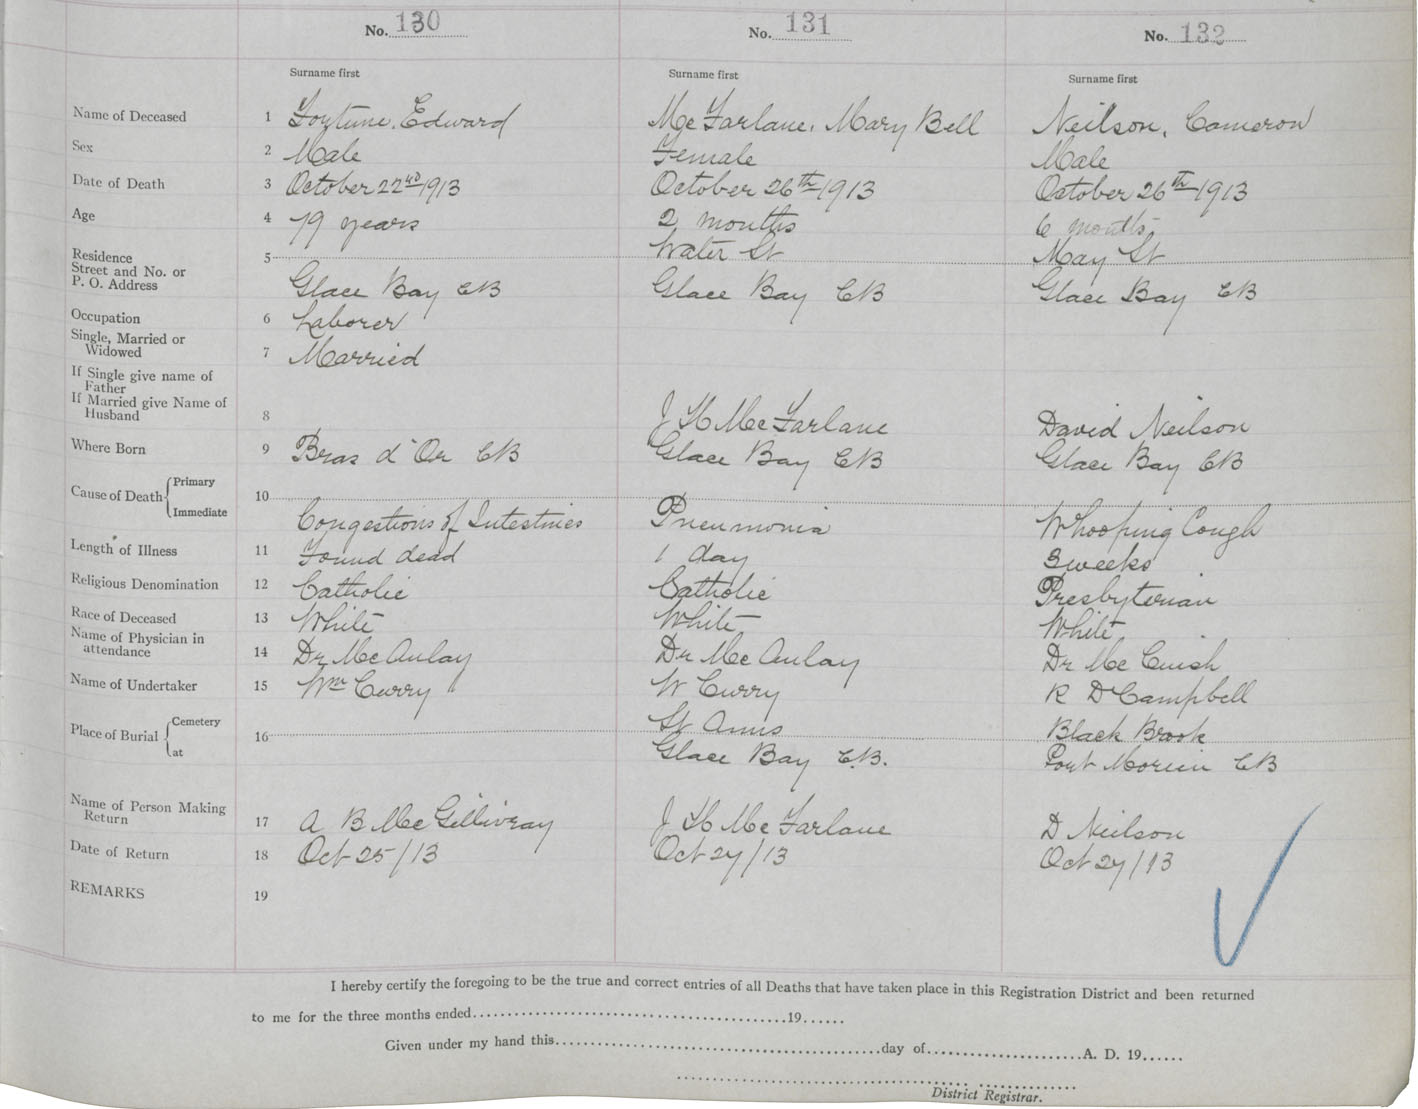 No. 130 No. 131 No. 132
Surname first Surname first Surname first
Name of Deceased 1 Fortune, Edward McFarlane, Mary Bell Neilson, Cameron
Sex 2 Male Female Male
Date of Death 3 October 22nd 1913 October 26th 1913 October 26th 1913
Age 4 79 years 2 months 6 months
Residence 5 Water St May St
Street and No. or
P. O. Address Glace Bay CB Glace Bay CB Glace Bay CB
Occupation 6 Laborer
Single, Married or
Widowed 7 Married
If Single give name of
Father
If Married give Name of
Husband 8 J H McFarlane David Neilson
Where Born 9 Bras d'Or CB Glace Bay CB Glace Bay CB
Cause of Death { Primary 10
Immediate Congestions of Intestines Pneumonia Whooping Cough
Length of Illness 11 Found dead 1 day 3 weeks
Religious Denomination 12 Catholic Catholic Presbyterian
Race of Deceased 13 White White White
Name of Physician in
attendance 14 Dr McAulay Dr McAulay Dr McCuish
Name of Undertaker 15 Wm Curry W Curry R D Campbell
Place of Burial { Cemetery 16 St Anns Black Brook
at Glace Bay C.B. Port Morien CB
Name of Person Making
Return 17 A B McGillivray J H McFarlane D Neilson
Date of Return 18 Oct 25/13 Oct 27/13 Oct 27/13
REMARKS 19
I hereby certify the foregoing to be the true and correct entries of all Deaths that have taken place in this Registration District and been returned
to me for the three months ended 19
Given under my hand this day of A. D. 19
District Registrar.